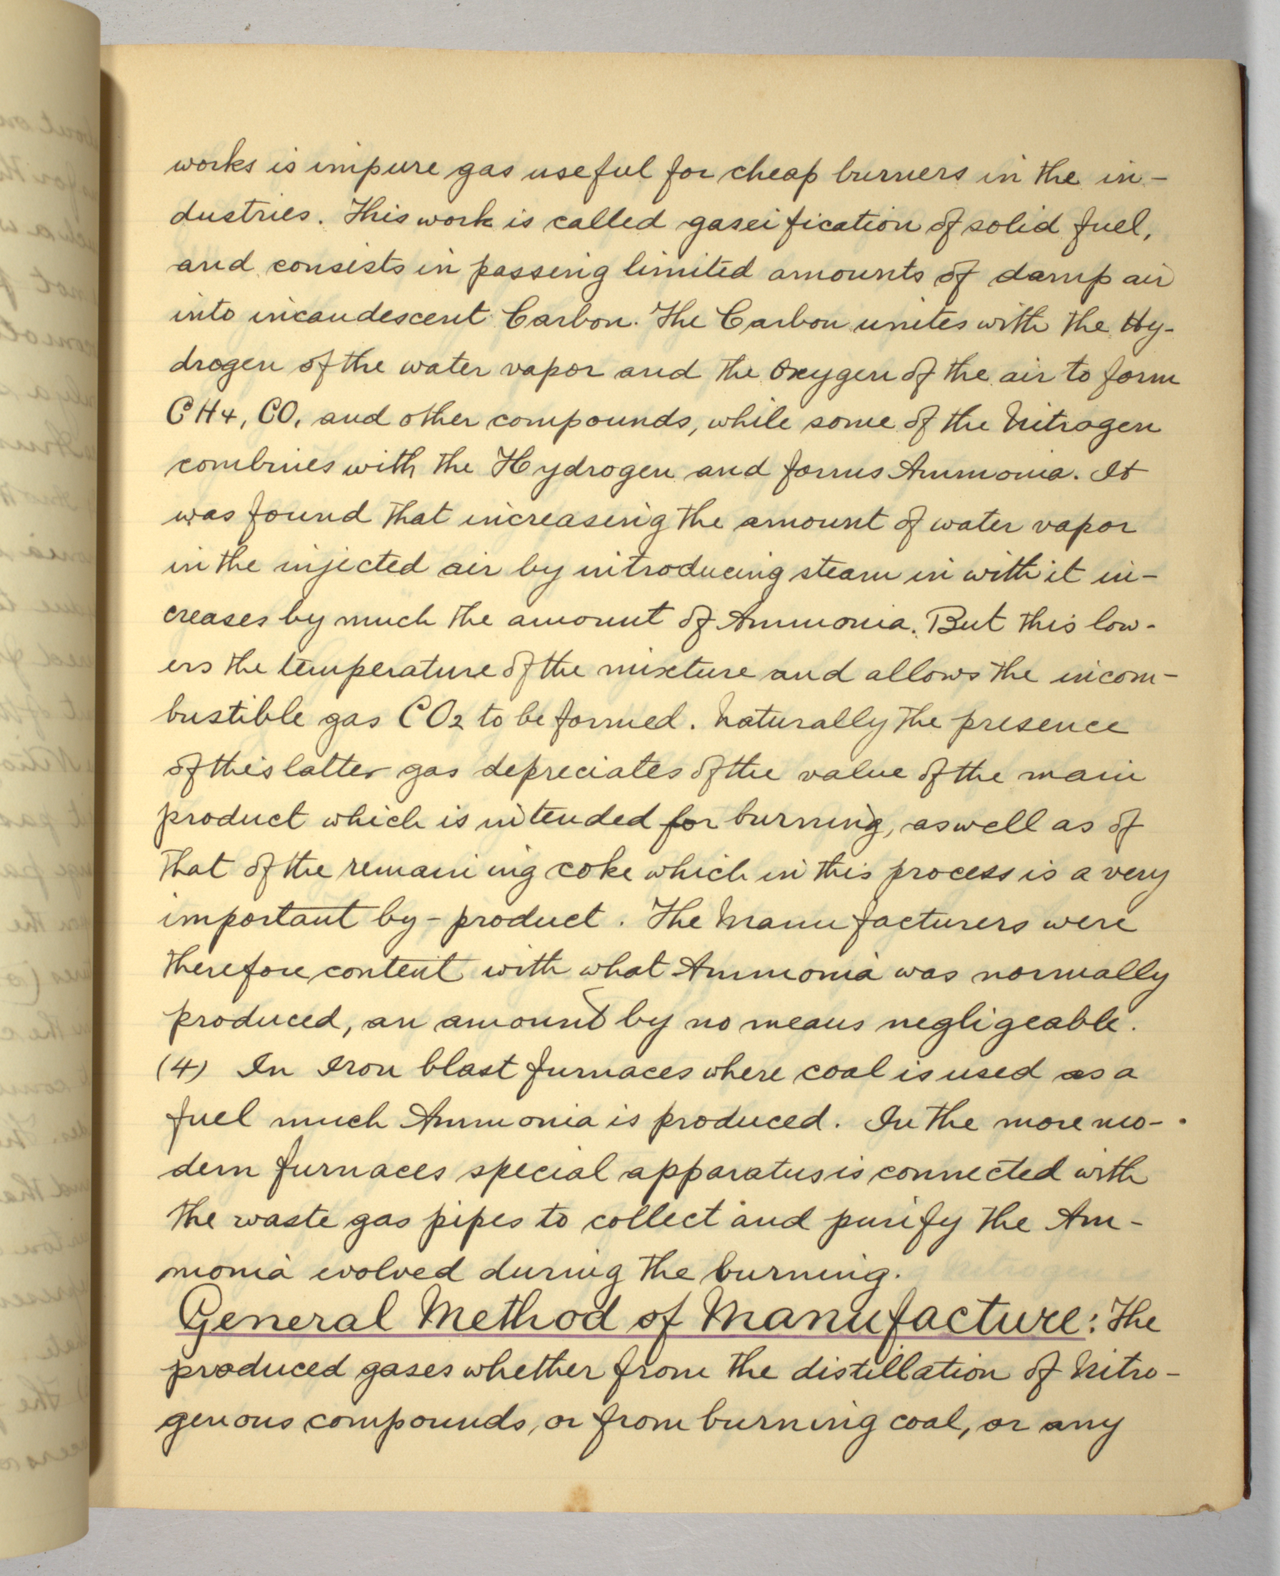 works is impure gas useful for cheap burners in the in-
dustries. This work is called gaseification of solid fuel,
and consists in passing limited amounts of damp air
into incandescent Carbon. The Carbon unites with the Hy-
drogen of the water vapor and the Oxygen of the air to form
CH4, CO, and other compounds, while some of the Nitrogen
combines with the Hydrogen and forms Ammonia. It
was found that increasing the amount of water vapor
in the injected air by introducing steam in with it in-
creases by much the amount of Ammonia. But this low-
ers the temperature of the mixture and allows the incom-
bustible gas CO2 to be formed. Naturally the presence
of this latter gas depreciates of the value of the main
product which is intended for burning, as well as of
that of the remaining coke which in this process is a very
important by-product. The Manufacturers were
therefore content with what Ammonia was normally
produced, an amount by no means negligeable.
(4) In Iron blast furnaces where coal is used as a
fuel much Ammonia is produced. In the more mo-
dern furnaces special apparatus is connected with
the waste gas pipes to collect and purify the Am-
monia evolved during the burning.
General Method of Manufacture: The
produced gases whether from the distillation of Nitro-
genous compounds, or from burning coal, or any